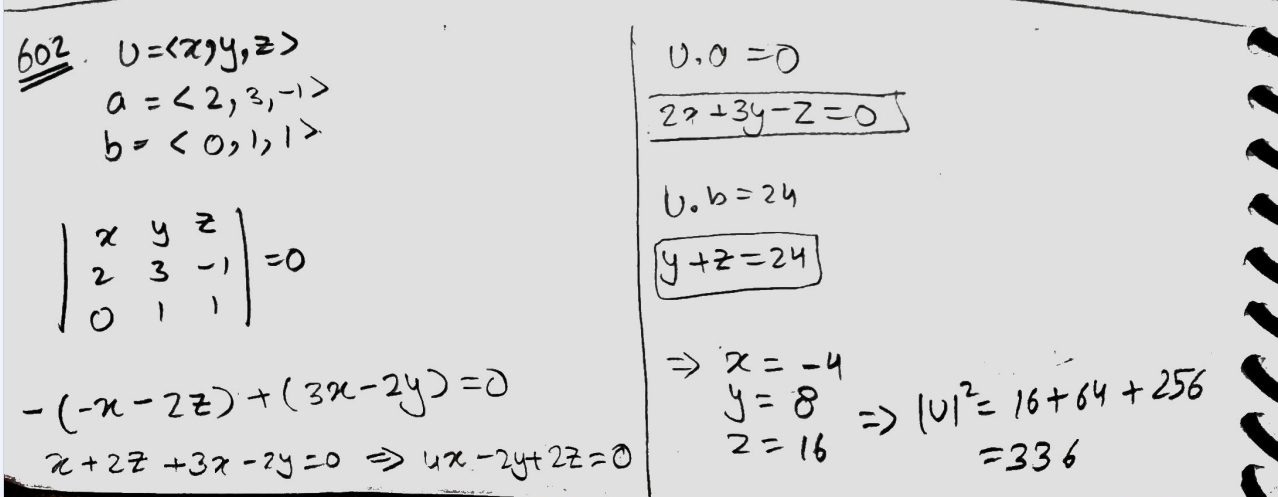 602. U=<x,y,z>
a = <2,3,-1>
b = <0,1,1>
| x y z |
| 2 3 -1 | =0
| 0 1 1 |
-(-x-2z)+(3x-2y)=0
x+2z+3x-2y=0 ⇒ 4x-2y+2z=0
U.a=0
2x+3y-z=0
U.b=24
y+z=24
⇒ x=-4
y=8 ⇒ |U|²= 16+64+256
z=16 =336